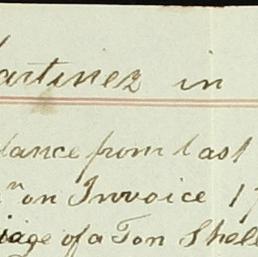 artinez in
lance from last
on Invoice 17
iage of a Ton Shel